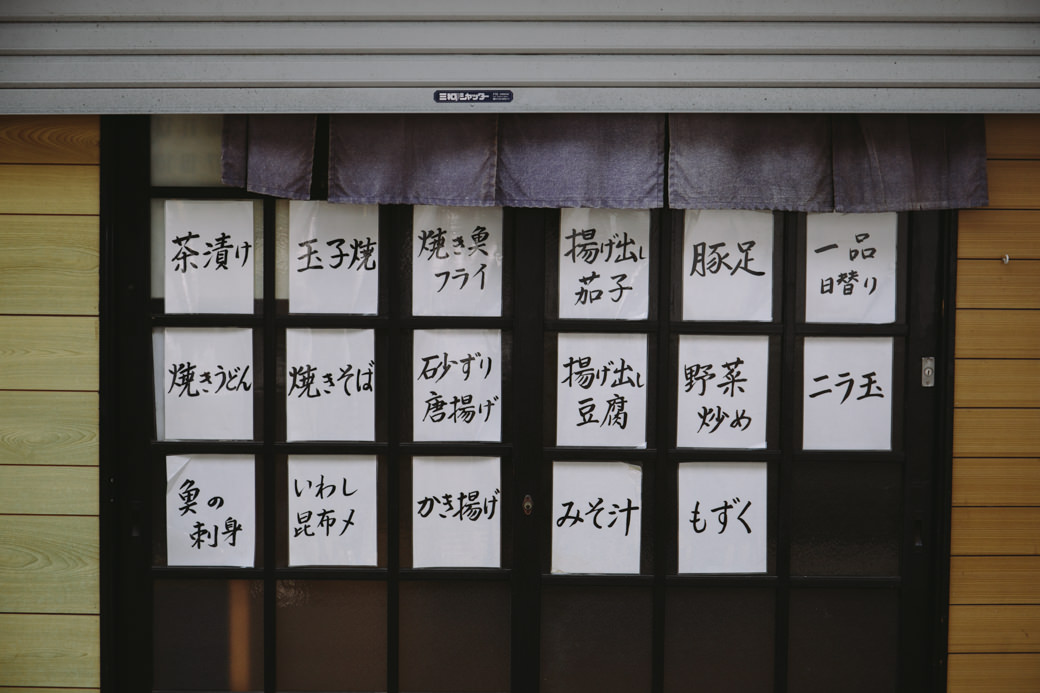 三和シャッター
茶漬け
玉子焼
焼き魚
フライ
揚げ出し
茄子
豚足
一品
日替り
焼きうどん
焼きそば
砂ずり
唐揚げ
揚げ出し
豆腐
野菜
炒め
ニラ玉
魚の
刺身
いわし
昆布〆
かき揚げ
みそ汁
もずく